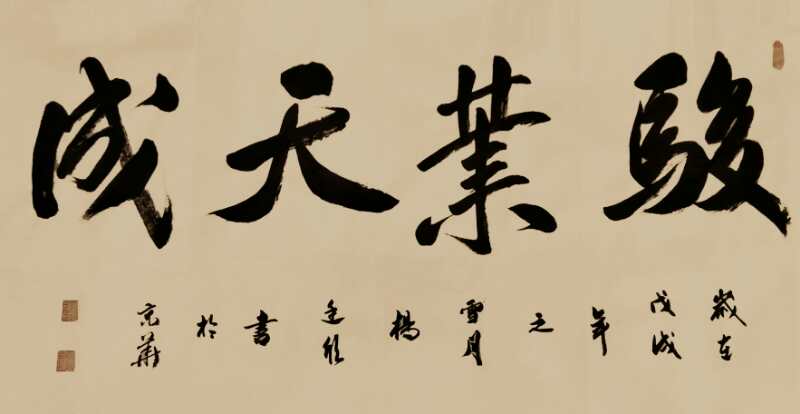 駿業天成
歲在戊戌年之雪月楊書於京華